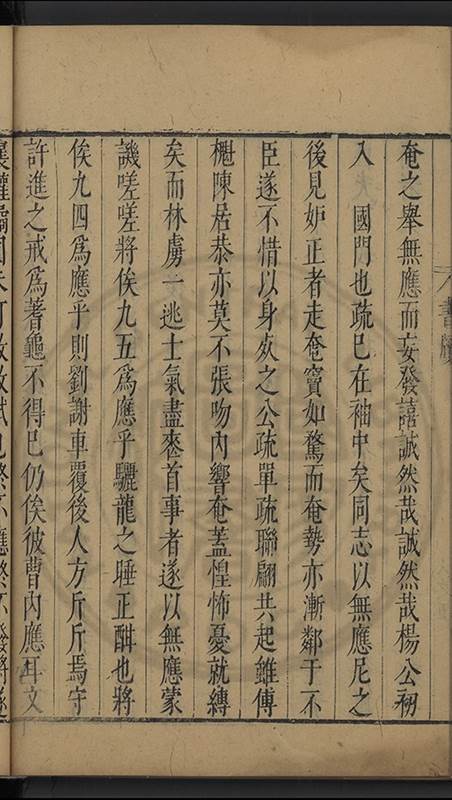 奄之舉無應而妄發譆誠然哉誠然哉楊公初
入　國門也疏已在袖中矣同志以無應尼之
後見妒正者走奄竇如鶩而奄勢亦漸鄰于不
臣遂不惜以身殉之公疏單疏聯翩共起雖傅
櫆陳居恭亦莫不張吻內響奄蓋惶怖憂就縛
矣而林虜一逃士氣盡喪首事者遂以無應蒙
譏嗟嗟將俟九五爲應乎驪龍之睡正酣也將
俟九四爲應乎則劉謝車覆後人方斤斤焉守
許進之戒爲蓍龜不得已仍俟彼曹內應耳文